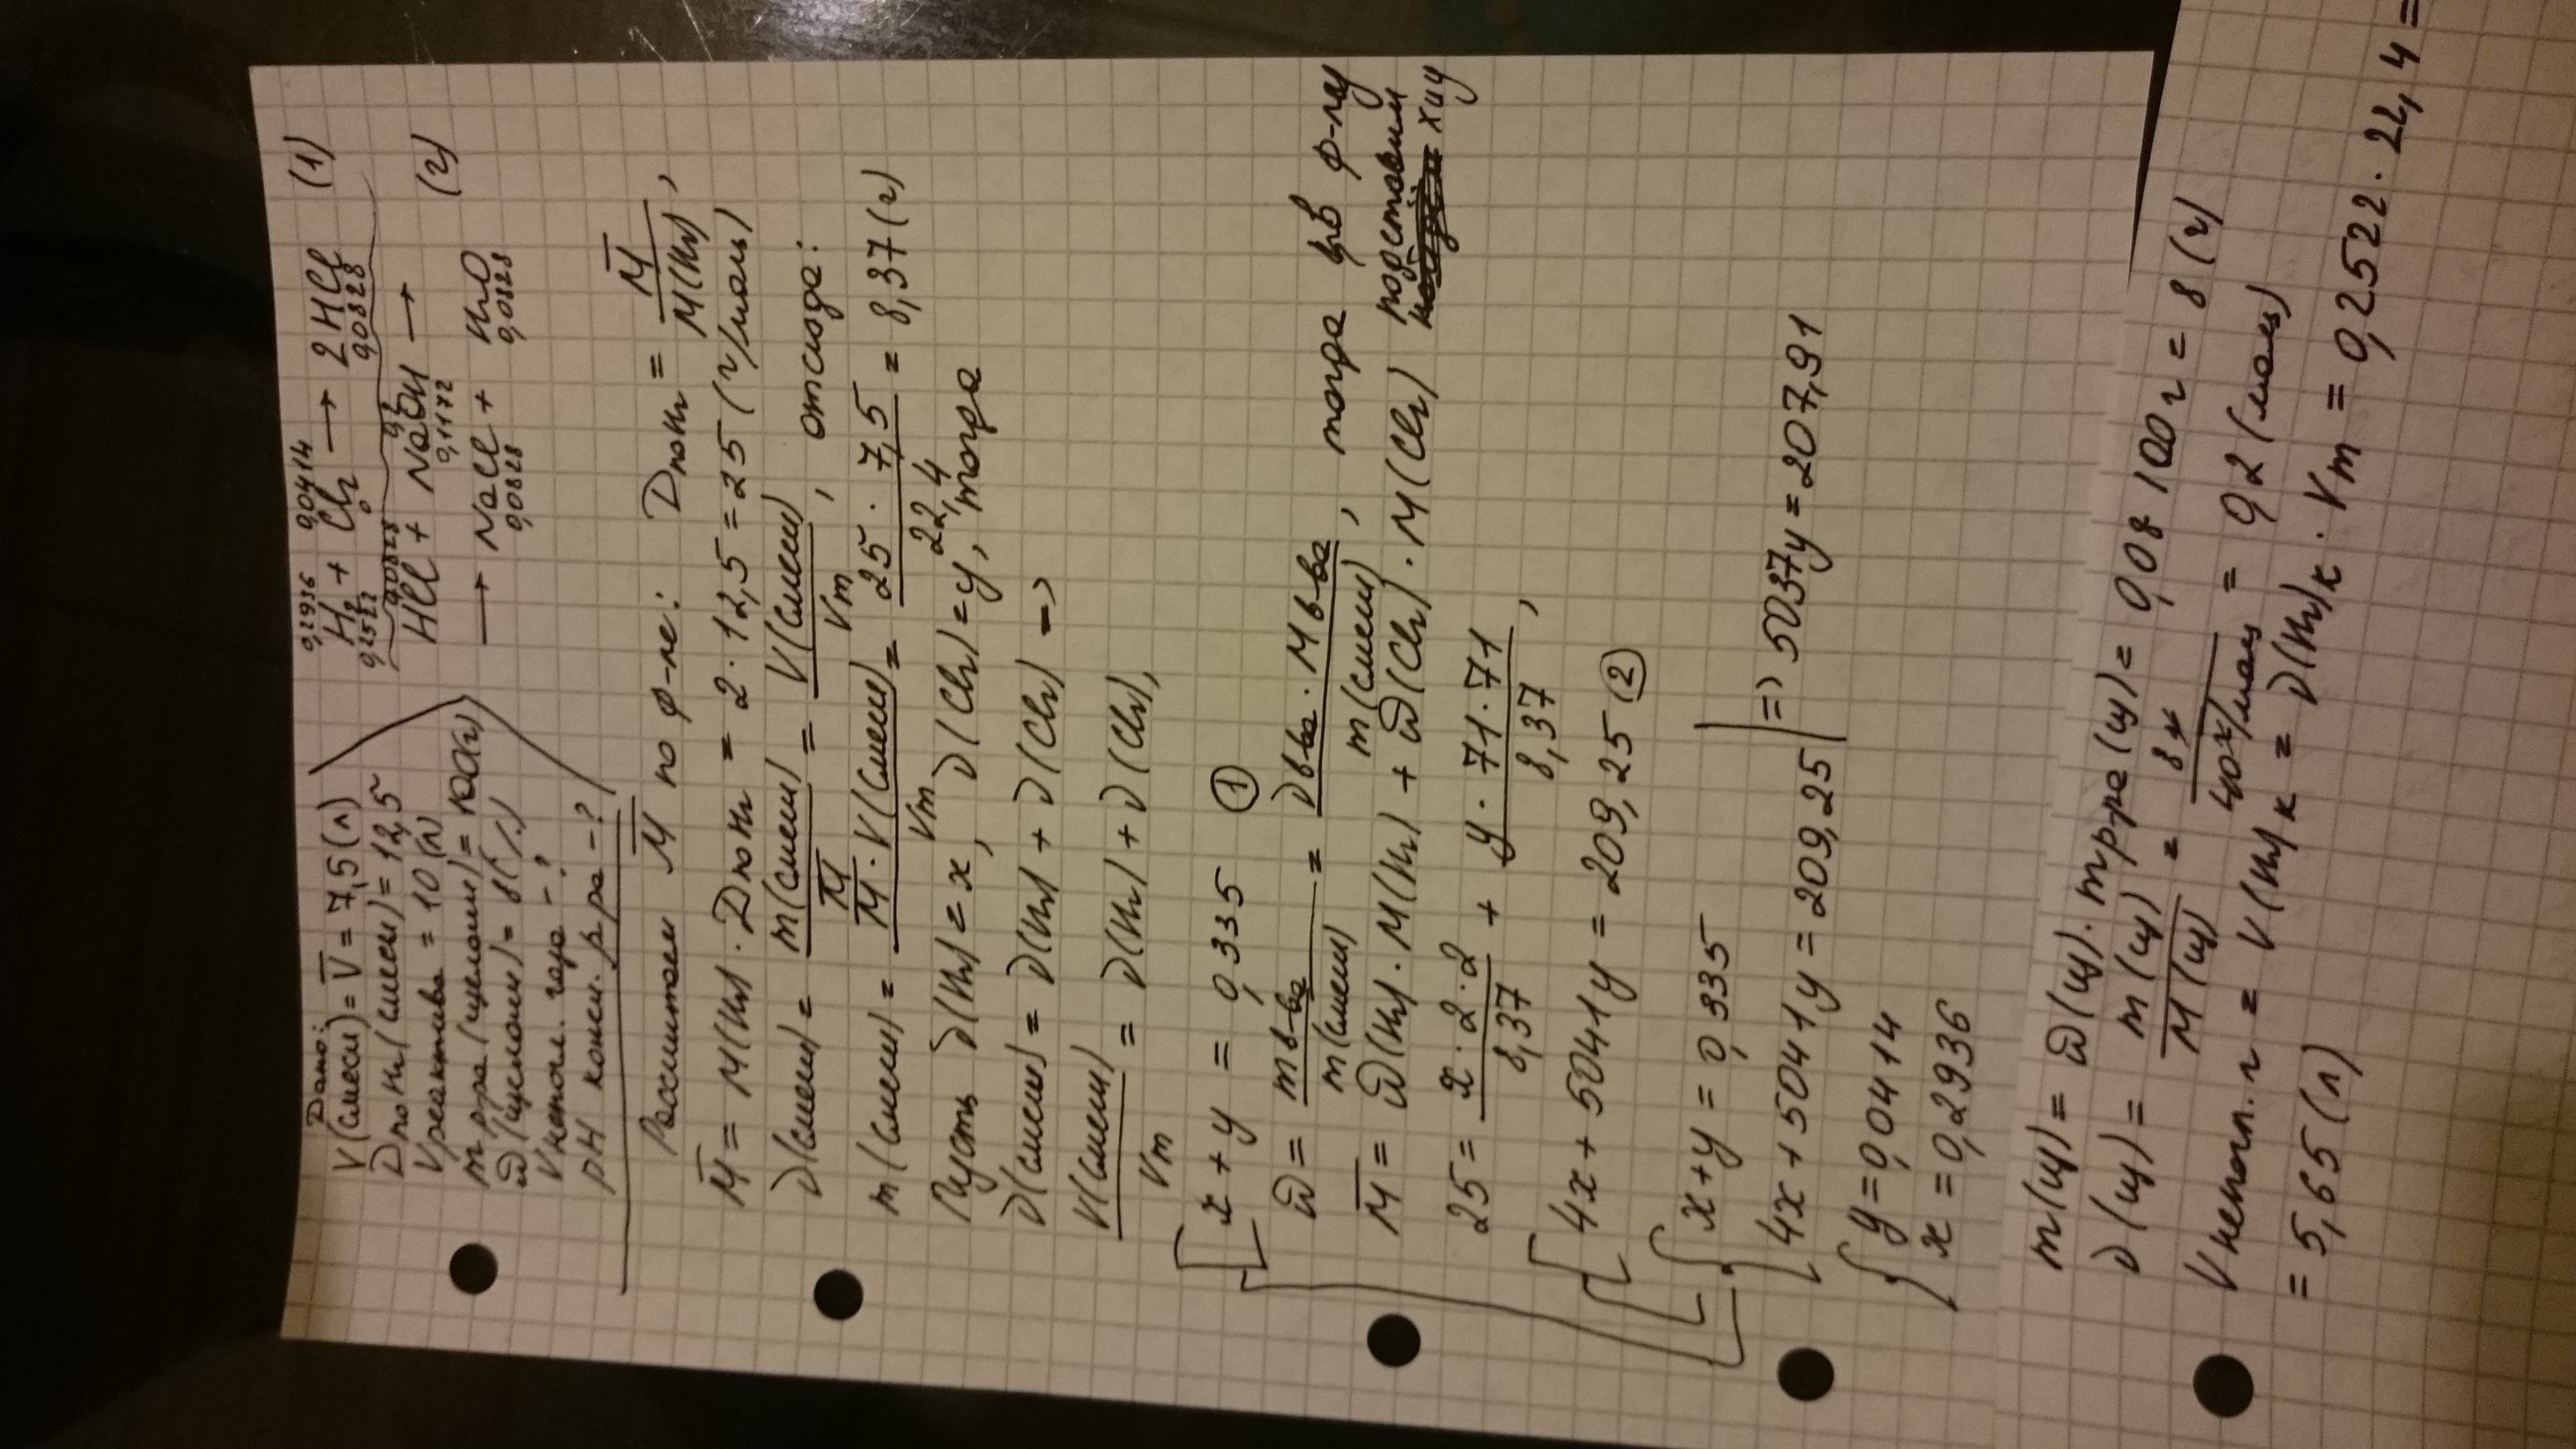 Дано:
V(смеси) = V̅ = 7,5 (л)
D по H₂ (смеси) = 12,5
V реактива = 10 (л)
m р-ра (щелочи) = 100 (г)
ω (щелочи) = 8 (%)
V непогл. газа - ?
pH конеч. р-ра - ?
0,2936 0,0414
H₂ + Cl₂ → 2HCl (1)
0,2522 0 0,0828
0,0828 0,2
HCl + NaOH → (2)
0,1172
→ NaCl + H₂O
0,0828 0,0828
Рассчитаем M̅ по ф-ле: D по H₂ = M̅ / M(H₂),
M̅ = M(H₂) · D по H₂ = 2 · 12,5 = 25 (г/моль)
ν(смеси) = m(смеси) / M̅ = V(смеси) / Vm, отсюда:
m(смеси) = M̅ · V(смеси) / Vm = 25 · 7,5 / 22,4 = 8,37 (г)
Пусть ν(H₂) = x, ν(Cl₂) = y, тогда
ν(смеси) = ν(H₂) + ν(Cl₂) =>
V(смеси) / Vm = ν(H₂) + ν(Cl₂),
x + y = 0,335 ①
ω = m в-ва / m(смеси) = ν в-ва · M в-ва / m(смеси), тогда в ф-лу
M̅ = ω(H₂) · M(H₂) + ω(Cl₂) · M(Cl₂) подставим x и y
25 = x · 2 · 2 / 8,37 + y · 71 · 71 / 8,37,
4x + 5041y = 209,25 ②
x + y = 0,335
4x + 5041y = 209,25 | => 5037y = 207,91
y = 0,0414
x = 0,2936
m(щ) = ω(щ) · m р-ра(щ) = 0,08 · 100 г = 8 (г)
ν(щ) = m(щ) / M(щ) = 8 г / 40 г/моль = 0,2 (моль)
V непогл. г = V(H₂)к = ν(H₂)к · Vm = 0,2522 · 22,4 =
= 5,65 (л)